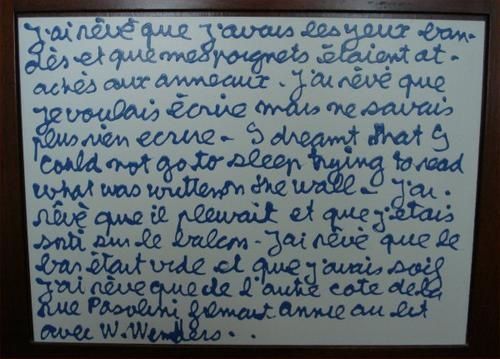 j'ai rêvé que j'avais les yeux ban-
dés et que mes poignets étaient at-
achés aux anneaux. J'ai rêvé que
je voulais écrire mais ne savais
plus rien ecrire - I dreamt that I
could not go to sleep trying to read
what was written on the wall - j'ai.
rêvé que il pleuvait et que j'étais
sorti sur le balcon - J'ai rêvé que le
bar était vide et que j'avais soif
j'ai rêvé que de l'autre coté de la
rue Pasolini filmait annie au lit
avec W. Wenders . .